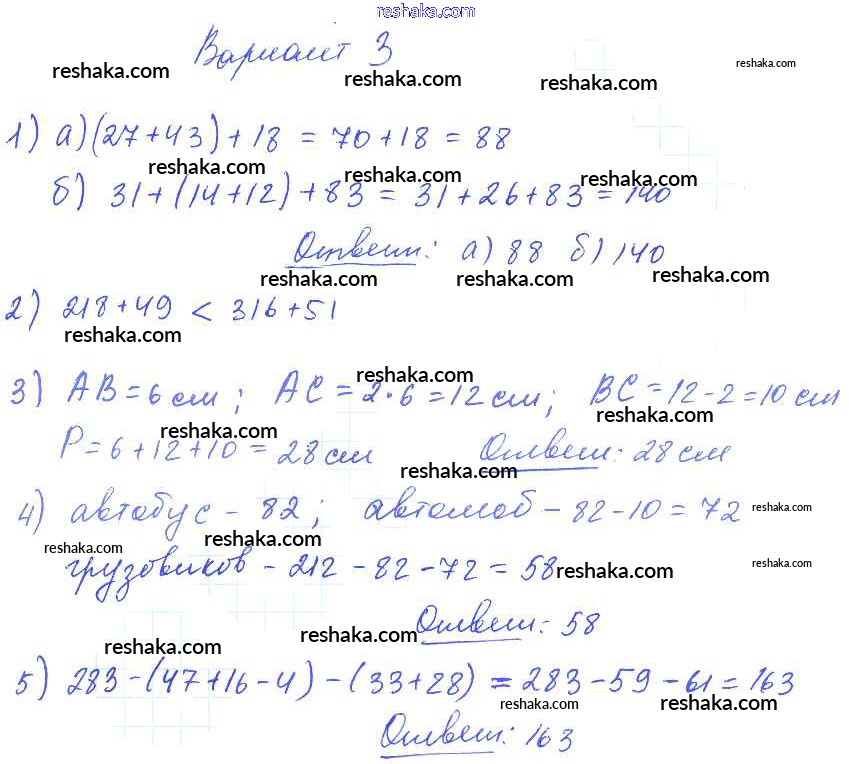 reshaka.com
Вариант 3
reshaka.com reshaka.com reshaka.com reshaka.com
1) а) (27+43)+18 = 70+18 = 88
reshaka.com reshaka.com reshaka.com
б) 31+(14+12)+83 = 31+26+83 = 140
Ответ: а) 88 б) 140
reshaka.com reshaka.com reshaka.com
2) 218+49 < 316+51
reshaka.com
3) AB=6 см; AC=2·6=12 см; BC=12-2=10 см
reshaka.com reshaka.com
P=6+12+10=28 см Ответ: 28 см
reshaka.com reshaka.com
4) автобус - 82; автомоб - 82-10=72
reshaka.com reshaka.com reshaka.com
грузовиков - 212-82-72=58
reshaka.com reshaka.com
Ответ: 58
reshaka.com reshaka.com
5) 283-(47+16-4)-(33+28) = 283-59-61=163
reshaka.com reshaka.com
Ответ: 163